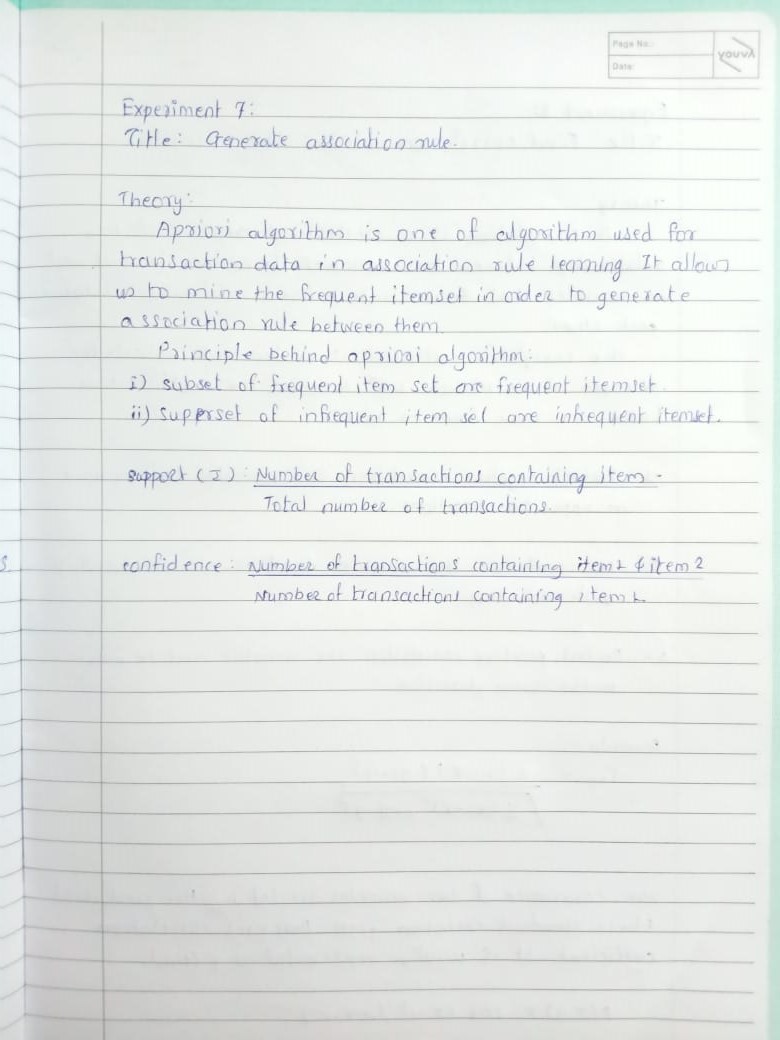 Page No.:
Date:
youva
Experiment 7:
Title: Generate association rule.
Theory:
Apriori algorithm is one of algorithm used for
transaction data in association rule learning It allows
us to mine the frequent itemset in order to generate
association rule between them.
Principle behind apriori algorithm:
i) subset of frequent item set are frequent itemset.
ii) superset of infrequent item set are infrequent itemset.
support (I): Number of transactions containing item.
Total number of transactions.
confidence: Number of transactions containing item 1 & item 2
Number of transactions containing item 1.